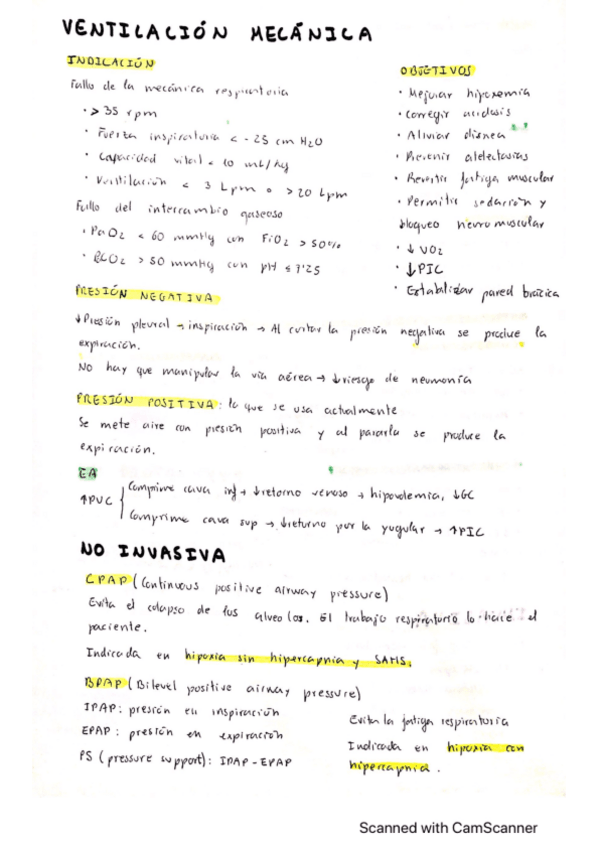 VENTILACIÓN MECÁNICA
INDICACIÓN
Fallo de la mecánica respiratoria
· > 35 rpm
· Fuerza inspiratoria < -25 cm H2O
· Capacidad vital < 10 mL/kg
· Ventilación < 3 Lpm o > 20 Lpm
Fallo del intercambio gaseoso
· PaO2 < 60 mmHg con FiO2 > 50%
· PCO2 > 50 mmHg con pH ≤ 7'25
OBJETIVOS
· Mejorar hipoxemia
· Corregir acidosis
· Aliviar disnea
· Prevenir atelectasias
· Revertir fatiga muscular
· Permitir sedación y
bloqueo neuromuscular
· ↓ VO2
· ↓ PIC
· Estabilizar pared torácica
PRESIÓN NEGATIVA
↓ Presión pleural → inspiración → Al cortar la presión negativa se produce la
expiración.
No hay que manipular la vía aérea → ↓ riesgo de neumonía
PRESIÓN POSITIVA: lo que se usa actualmente
Se mete aire con presión positiva y al pararla se produce la
expiración.
EA
↑PVC { Comprime cava inf → ↓retorno venoso → hipovolemia, ↓GC
Comprime cava sup → ↓retorno por la yugular → ↑PIC
NO INVASIVA
CPAP (Continuous positive airway pressure)
Evita el colapso de los alveolos. El trabajo respiratorio lo hace el
paciente.
Indicada en hipoxia sin hipercapnia y SAHS.
BPAP (Bilevel positive airway pressure)
IPAP: presión en inspiración
EPAP: presión en expiración
PS (pressure support): IPAP - EPAP
Evita la fatiga respiratoria
Indicada en hipoxia con
hipercapnia.
Scanned with CamScanner